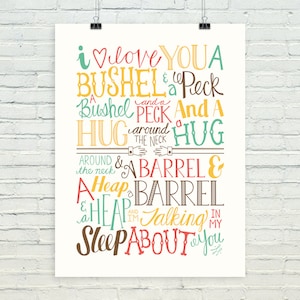 i love YOU A
BUSHEL & a Peck
A Bushel and a PECK And A
HUG around THE NECK A HUG
AROUND the neck & A BARREL &
A Heap BARREL
& A HEAP AND I'M Talking IN MY
Sleep ABOUT & You